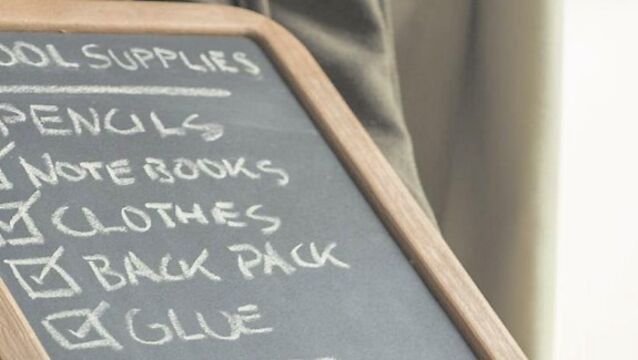 OOL SUPPLIES
PENCILS
NOTEBOOKS
CLOTHES
BACK PACK
GLUE